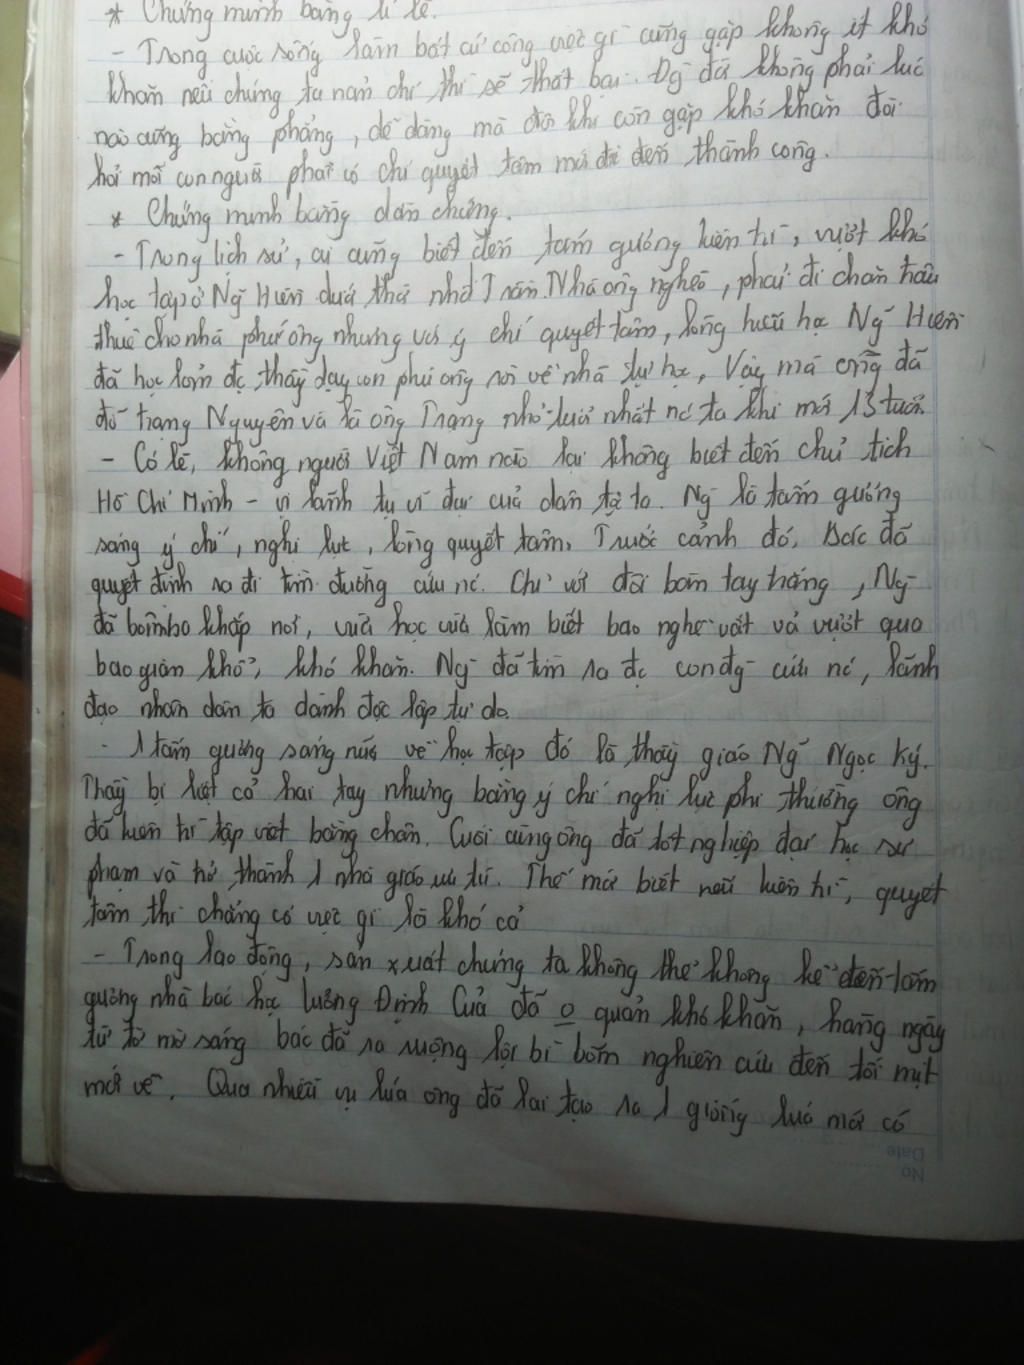 * Chứng minh bằng lí lẽ.
- Trong cuộc sống làm bất cứ công việc gì cũng gặp không ít khó
khăn nếu chúng ta nản chí thì sẽ thất bại. Đg đời không phải lúc
nào cũng bằng phẳng, dễ dàng mà đôi khi còn gặp khó khăn đòi
hỏi mỗi con người phải có chí quyết tâm mới đi đến thành công.
* Chứng minh bằng dẫn chứng.
- Trong lịch sử, ai cũng biết đến tấm gương kiên trì, vượt khó
học tập ở Ng~ Hiền dưới thời nhà Trần. Nhà ông nghèo, phải đi chăn trâu
thuê cho nhà phú ông nhưng với ý chí quyết tâm, lòng hiếu học Ng~ Hiền
đã học lỏm đc thầy dạy con phú ông rồi về nhà tự học, Vậy mà ông đã
đỗ trạng Nguyên và là ông Trạng nhỏ tuổi nhất nc ta khi mới 13 tuổi.
- Có lẽ, không người Việt Nam nào lại không biết đến chủ tịch
Hồ Chí Minh - vị lãnh tụ vĩ đại của dân tộc ta. Ng` là tấm gương
sáng ý chí, nghị lực, lòng quyết tâm. Trước cảnh đó, Bác đã
quyết định ra đi tìm đường cứu nc. Chỉ với đôi bàn tay trắng, Ng`
đã bôn ba khắp nơi, vừa học vừa làm biết bao nghề vất vả vượt qua
bao gian khổ, khó khăn. Ng` đã tìm ra đc con đg` cứu nc, lãnh
đạo nhân dân ta dành độc lập tự do.
- 1 tấm gương sáng nữa về học tập đó là thầy giáo Ng~ Ngọc Ký.
Thầy bị liệt cả hai tay nhưng bằng ý chí nghị lực phi thường ông
đã kiên trì tập viết bằng chân. Cuối cùng ông đã tốt nghiệp đại học sư
phạm và trở thành 1 nhà giáo ưu tú. Thế mới biết nếu kiên trì, quyết
tâm thì chẳng có việc gì là khó cả
- Trong lao động, sản xuất chúng ta không thể không kể đến tấm
gương nhà bác học Lương Định Của đã o quản khó khăn, hàng ngày
từ tờ mờ sáng bác đã ra ruộng lội bì bõm nghiên cứu đến tối mịt
mới về. Qua nhiều vụ lúa ông đã lai tạo ra 1 giống lúa mới có
No
Date